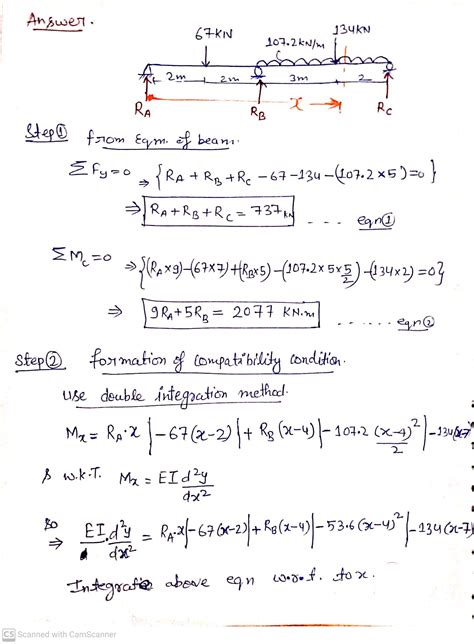 Answer.
67KN
134KN
107.2KN/m
2m 2m 3m 2
x
RA RB RC
Step① from Eqm. of beam.
ΣFy=0 ⇒ {RA+RB+RC-67-134-(107.2×5)=0}
⇒ RA+RB+RC = 737 KN ... eqn①
ΣMc=0 ⇒ {(RA×9)-(67×7)+(RB×5)-(107.2×5×5/2)-(134×2)=0}
⇒ 9RA+5RB = 2077 KN.m ..... eqn②
Step② formation of compatibility condition.
use double integration method.
Mx = RA·x |-67(x-2)|+ RB(x-4)|-107.2 (x-4)²/2 |-134(x-7
& w.k.T. Mx = EI d²y/dx²
So
⇒ EI.d²y/dx² = RA·x|-67(x-2)|+RB(x-4)|-53.6(x-4)²|-134(x-7)
Integrate above eqn w.r.t. to x.
CS Scanned with CamScanner